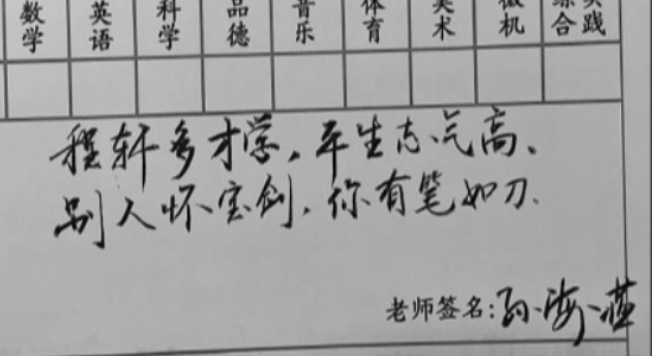 数学 英语 科学 品德 音乐 体育 美术 微机 综合实践
程轩多才学，平生志气高、
别人怀宝剑，你有笔如刀.
老师签名:孙海燕